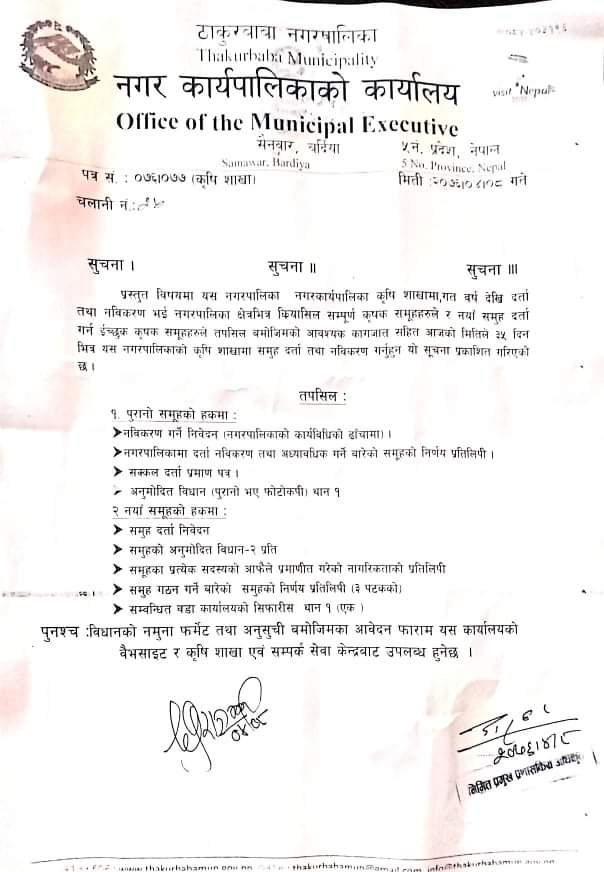 ठाकुरबाबा नगरपालिका
Thakurbaba Municipality
नगर कार्यपालिकाको कार्यालय
visit Nepal
Office of the Municipal Executive
सैनवार, बर्दिया ५नं. प्रदेश, नेपाल
Sainawar, Bardiya 5 No. Province, Nepal
पत्र सं. : ०७६।०७७ (कृषि शाखा) मिती :२०७६।०४।०८ गते
चलानी नं.:
सुचना । सुचना ॥ सुचना ॥।
प्रस्तुत विषयमा यस नगरपालिका नगरकार्यपालिका कृषि शाखामा,गत बर्ष देखि दर्ता
तथा नविकरण भई नगरपालिका क्षेत्रभित्र कियासिल सम्पूर्ण कृषक समूहहरुले र नयाँ समुह दर्ता
गर्न ईच्छुक कृषक समूहहरुले तपसिल बमोजिमको आवश्यक कागजात सहित आजको मितिले ३५ दिन
भित्र यस नगरपालिकाको कृषि शाखामा समुह दर्ता तथा नविकरण गर्नुहुन यो सूचना प्रकाशित गरिएको
छ ।
तपसिल :
१. पुरानो समूहको हकमा :
➤नविकरण गर्ने निवेदन (नगरपालिकाको कार्यविधिको ढाँचामा) ।
➤नगरपालिकामा दर्ता नविकरण तथा अध्यावधिक गर्ने बारेको समूहको निर्णय प्रतिलिपी ।
➤ सक्कल दर्ता प्रमाण पत्र ।
➤ अनुमोदित विधान (पुरानो भए फोटोकपी) थान १
२ नयाँ समूहको हकमा :
➤ समुह दर्ता निवेदन
➤ समुहको अनुमोदित विधान-२ प्रति
➤ समूहका प्रत्येक सदस्यको आफैले प्रमाणीत गरेको नागरिकताको प्रतिलिपी
➤ समुह गठन गर्ने बारेको समुहको निर्णय प्रतिलिपी (३ पटकको)
➤ सम्बन्धित वडा कार्यालयको सिफारीस थान १ (एक )
पुनश्च :बिधानको नमुना फर्मेट तथा अनुसुची बमोजिमका आवेदन फाराम यस कार्यालयको
वैभसाइट र कृषि शाखा एवं सम्पर्क सेवा केन्द्रबाट उपलब्ध हुनेछ ।
०४/०८
२०७६।४।८
निमित्त प्रमुख प्रशासकिय अधिकृत
www.thakurbabamun.gov.np thakurbabamun@gmail.com, info@thakurbabamun.gov.np